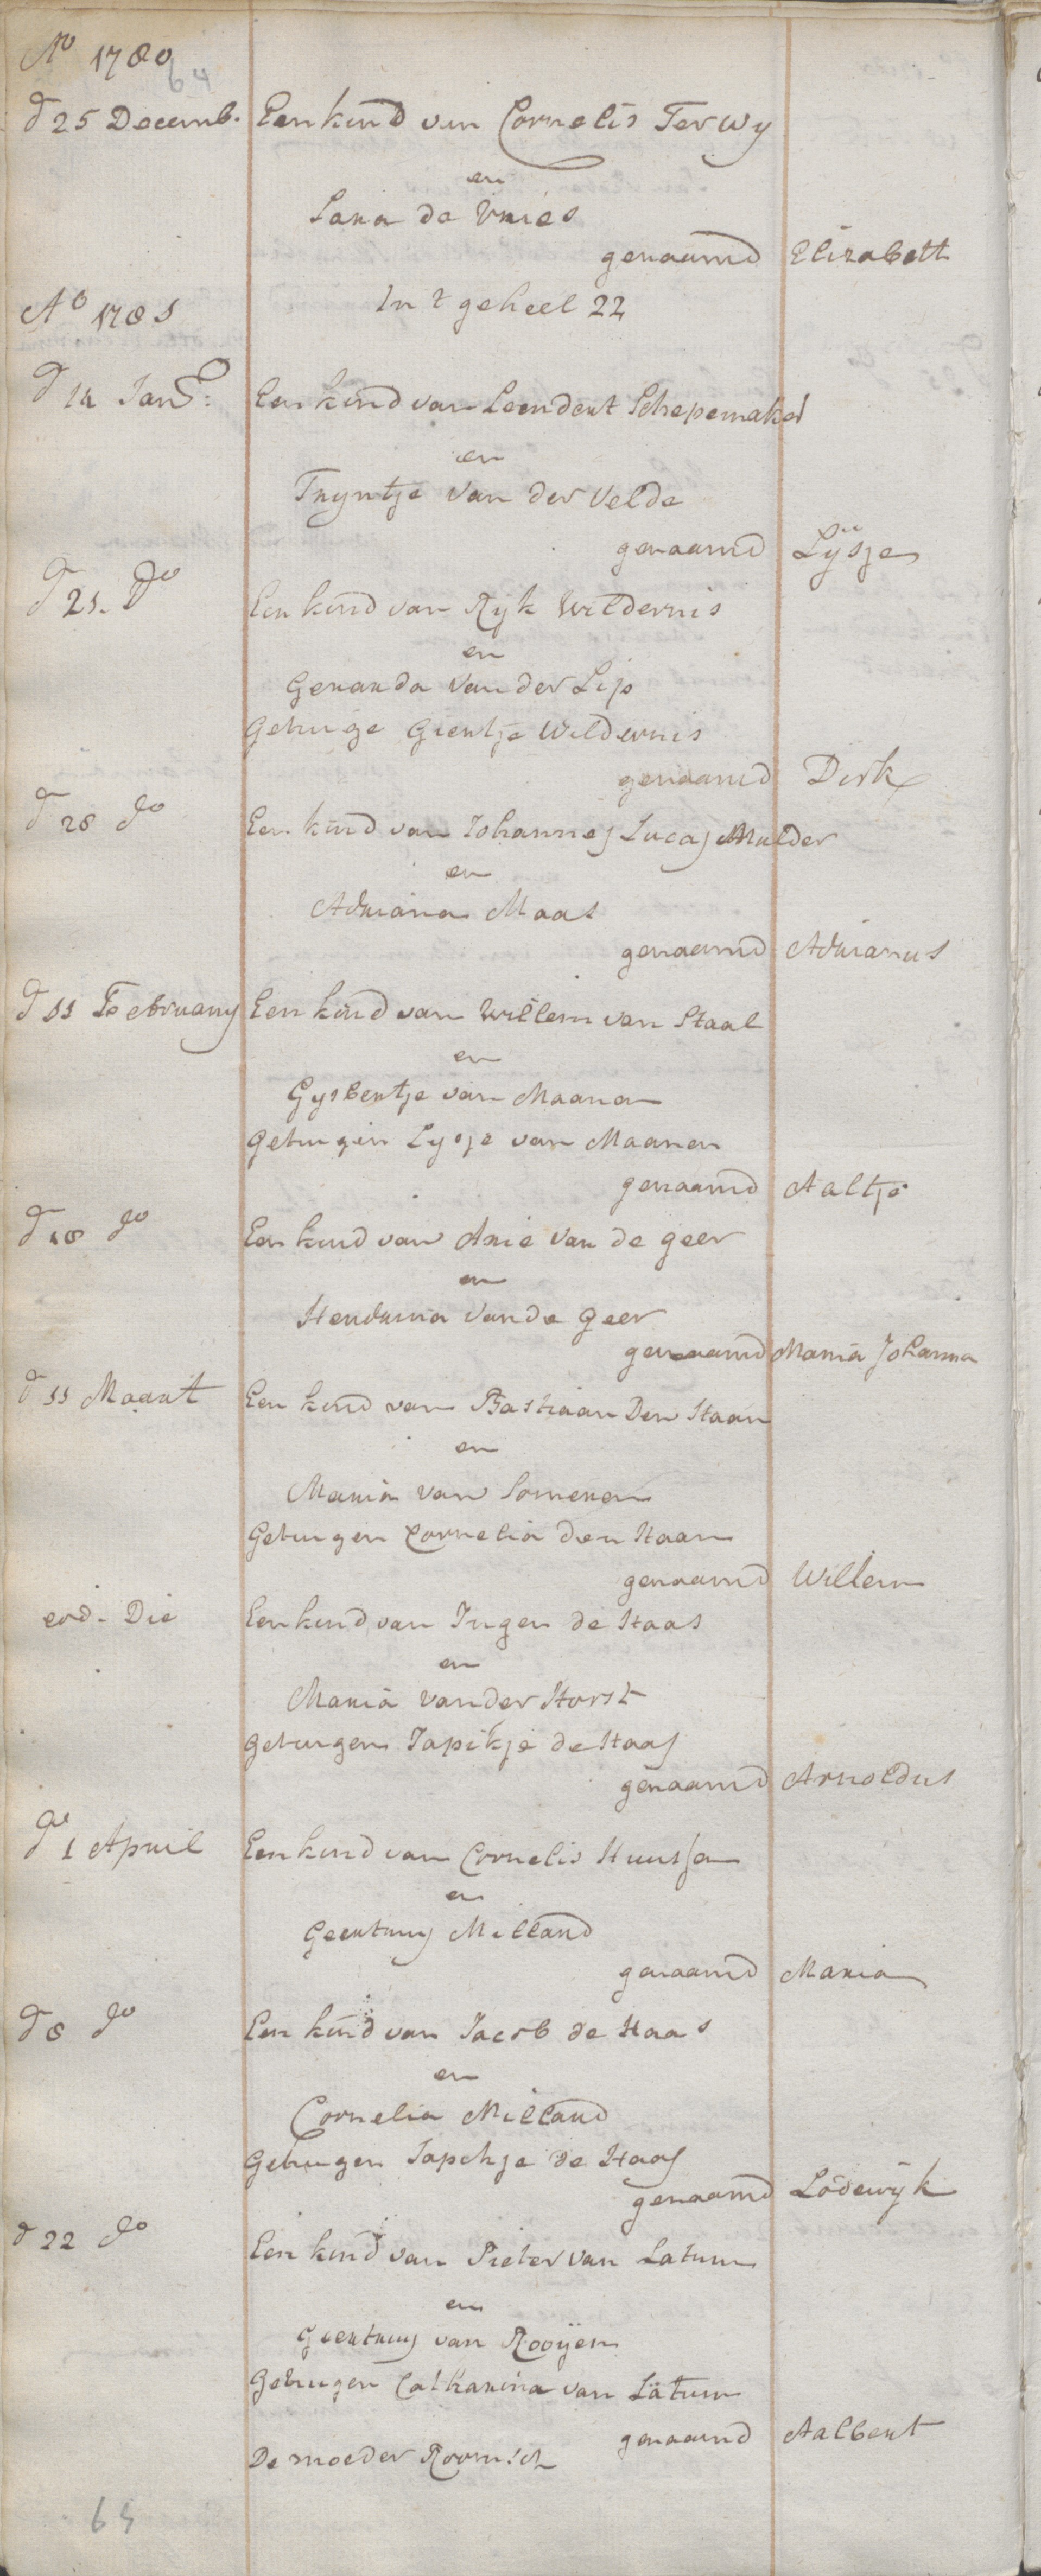 Ao 1780
64
d 25 Decemb. Een kind van Cornelis Terwy
en
Sara de Vries
genaamd Elizabett
In t geheel 22
Ao 1781
d 14 Jan: Een kind van Leendert Schepemaker
en
Tryntje van der Velde
genaamd Lÿsje
d 21. do Een kind van Ryk Wildernis
en
Gerarda van der Lip
Getuige Grietje Wildernis
genaamd Dirk
d 28 do Een kind van Johannes Lucas Mulder
en
Adriana Maas
genaamd Adrianus
d 11 February Een kind van Willem van Staal
en
Gysbertje van Maanen
Getuigen Lysje van Maanen
genaamd Aaltje
d 18 do Een kind van Arie van de Geer
en
Hendrina van de Geer
genaamd Maria Johanna
d 11 Maart Een kind van Bastiaan Den Haan
en
Maria van Someren
Getuigen Cornelia den Haan
genaamd Willem
eod. Die Een kind van Jurgen de Haas
en
Maria van der Horst
Getuigen Japikje de Haas
genaamd Arnoldus
d 1 April Een kind van Cornelis
en
Geertruy Milland
genaamd Maria
d 8 do Een kind van Jacob de Haas
en
Cornelia Milland
Getuigen Japckje de Haas
genaamd Lodewyk
d 22 do Een kind van Pieter van Latum
en
Geertruy van Rooÿen
Getuigen Catharina van Latum
genaamd Aalbert
De moeder Roomsch